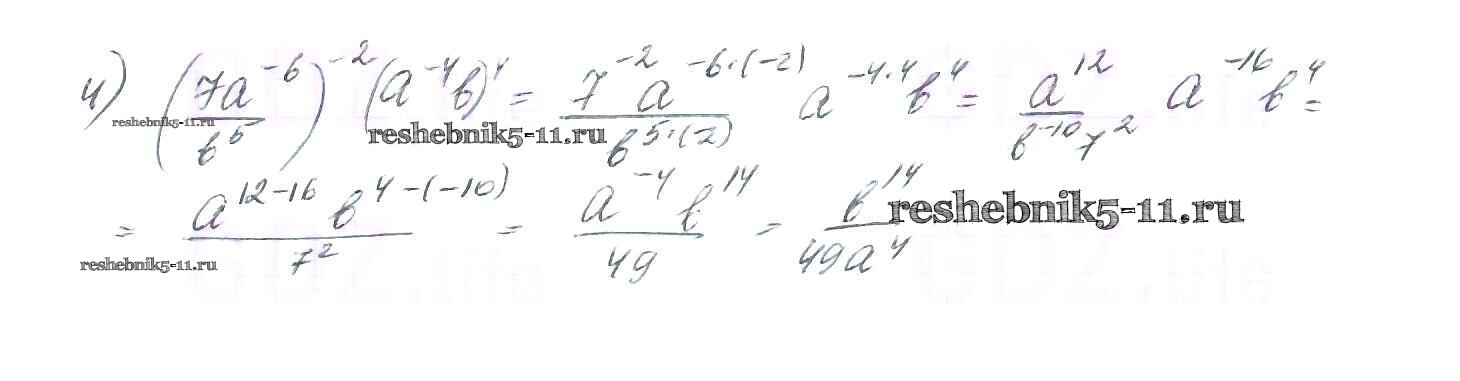 4) (7a^-6/b^5)^-2 (a^-4 b)^4 = 7^-2 a^-6·(-2)/b^5·(-2) a^-4·4 b^4 = a^12/b^-10 7^2 a^-16 b^4 =
reshebnik5-11.ru reshebnik5-11.ru
= a^12-16 b^4-(-10)/7^2 = a^-4 b^14/49 = b^14/49a^4
reshebnik5-11.ru reshebnik5-11.ru